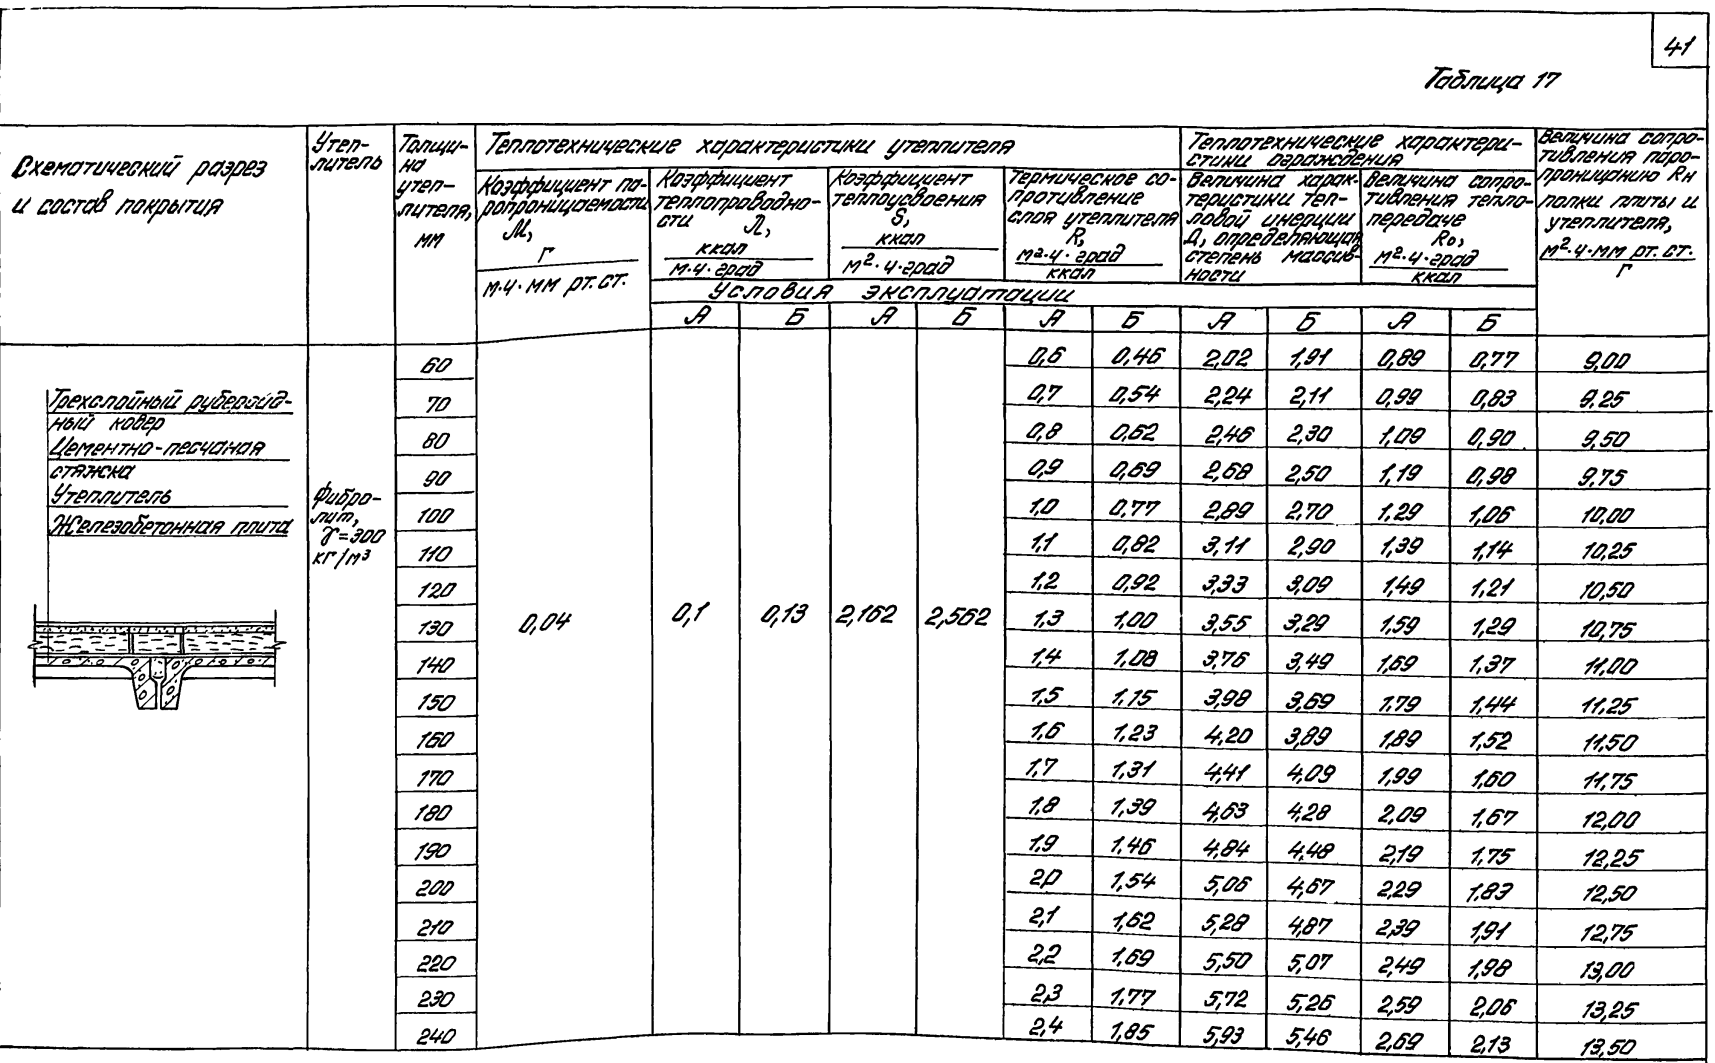 41
Таблица 17
Схематический разрез
и состав покрытия
Утеп-
литель
Толщи-
на
утеп-
лителя,
мм
Теплотехнические характеристики утеплителя
Коэффициент па-
ропроницаемости
М,
г
м·ч·мм рт.ст.
Коэффициент
теплопроводно-
сти λ,
ккал
м·ч·град
Коэффициент
теплоусвоения
S,
ккал
м²·ч·град
Термическое со-
противление
слоя утеплителя
R,
м²·ч·град
ккал
Теплотехнические характери-
стики ограждения
Величина харак-
теристики теп-
ловой инерции
Д, определяющая
степень массив-
ности
Величина сопро-
тивления тепло-
передаче
Rо,
м²·ч·град
ккал
Величина сопро-
тивления паро-
проницанию Rн
полки плиты и
утеплителя,
м²·ч·мм рт.ст.
г
Условия эксплуатации
А Б А Б А Б А Б А Б
Трехслойный рубероид-
ный ковер
Цементно-песчаная
стяжка
Утеплитель
Железобетонная плита
Фибро-
лит,
γ=300
кг/м³
0,04 0,1 0,13 2,162 2,562
60 0,6 0,46 2,02 1,91 0,89 0,77 9,00
70 0,7 0,54 2,24 2,11 0,99 0,83 9,25
80 0,8 0,62 2,46 2,30 1,09 0,90 9,50
90 0,9 0,69 2,68 2,50 1,19 0,98 9,75
100 1,0 0,77 2,89 2,70 1,29 1,06 10,00
110 1,1 0,82 3,11 2,90 1,39 1,14 10,25
120 1,2 0,92 3,33 3,09 1,49 1,21 10,50
130 1,3 1,00 3,55 3,29 1,59 1,29 10,75
140 1,4 1,08 3,76 3,49 1,69 1,37 11,00
150 1,5 1,15 3,98 3,69 1,79 1,44 11,25
160 1,6 1,23 4,20 3,89 1,89 1,52 11,50
170 1,7 1,31 4,41 4,09 1,99 1,60 11,75
180 1,8 1,39 4,63 4,28 2,09 1,67 12,00
190 1,9 1,46 4,84 4,48 2,19 1,75 12,25
200 2,0 1,54 5,06 4,67 2,29 1,83 12,50
210 2,1 1,62 5,28 4,87 2,39 1,91 12,75
220 2,2 1,69 5,50 5,07 2,49 1,98 13,00
230 2,3 1,77 5,72 5,26 2,59 2,06 13,25
240 2,4 1,85 5,93 5,46 2,69 2,13 13,50